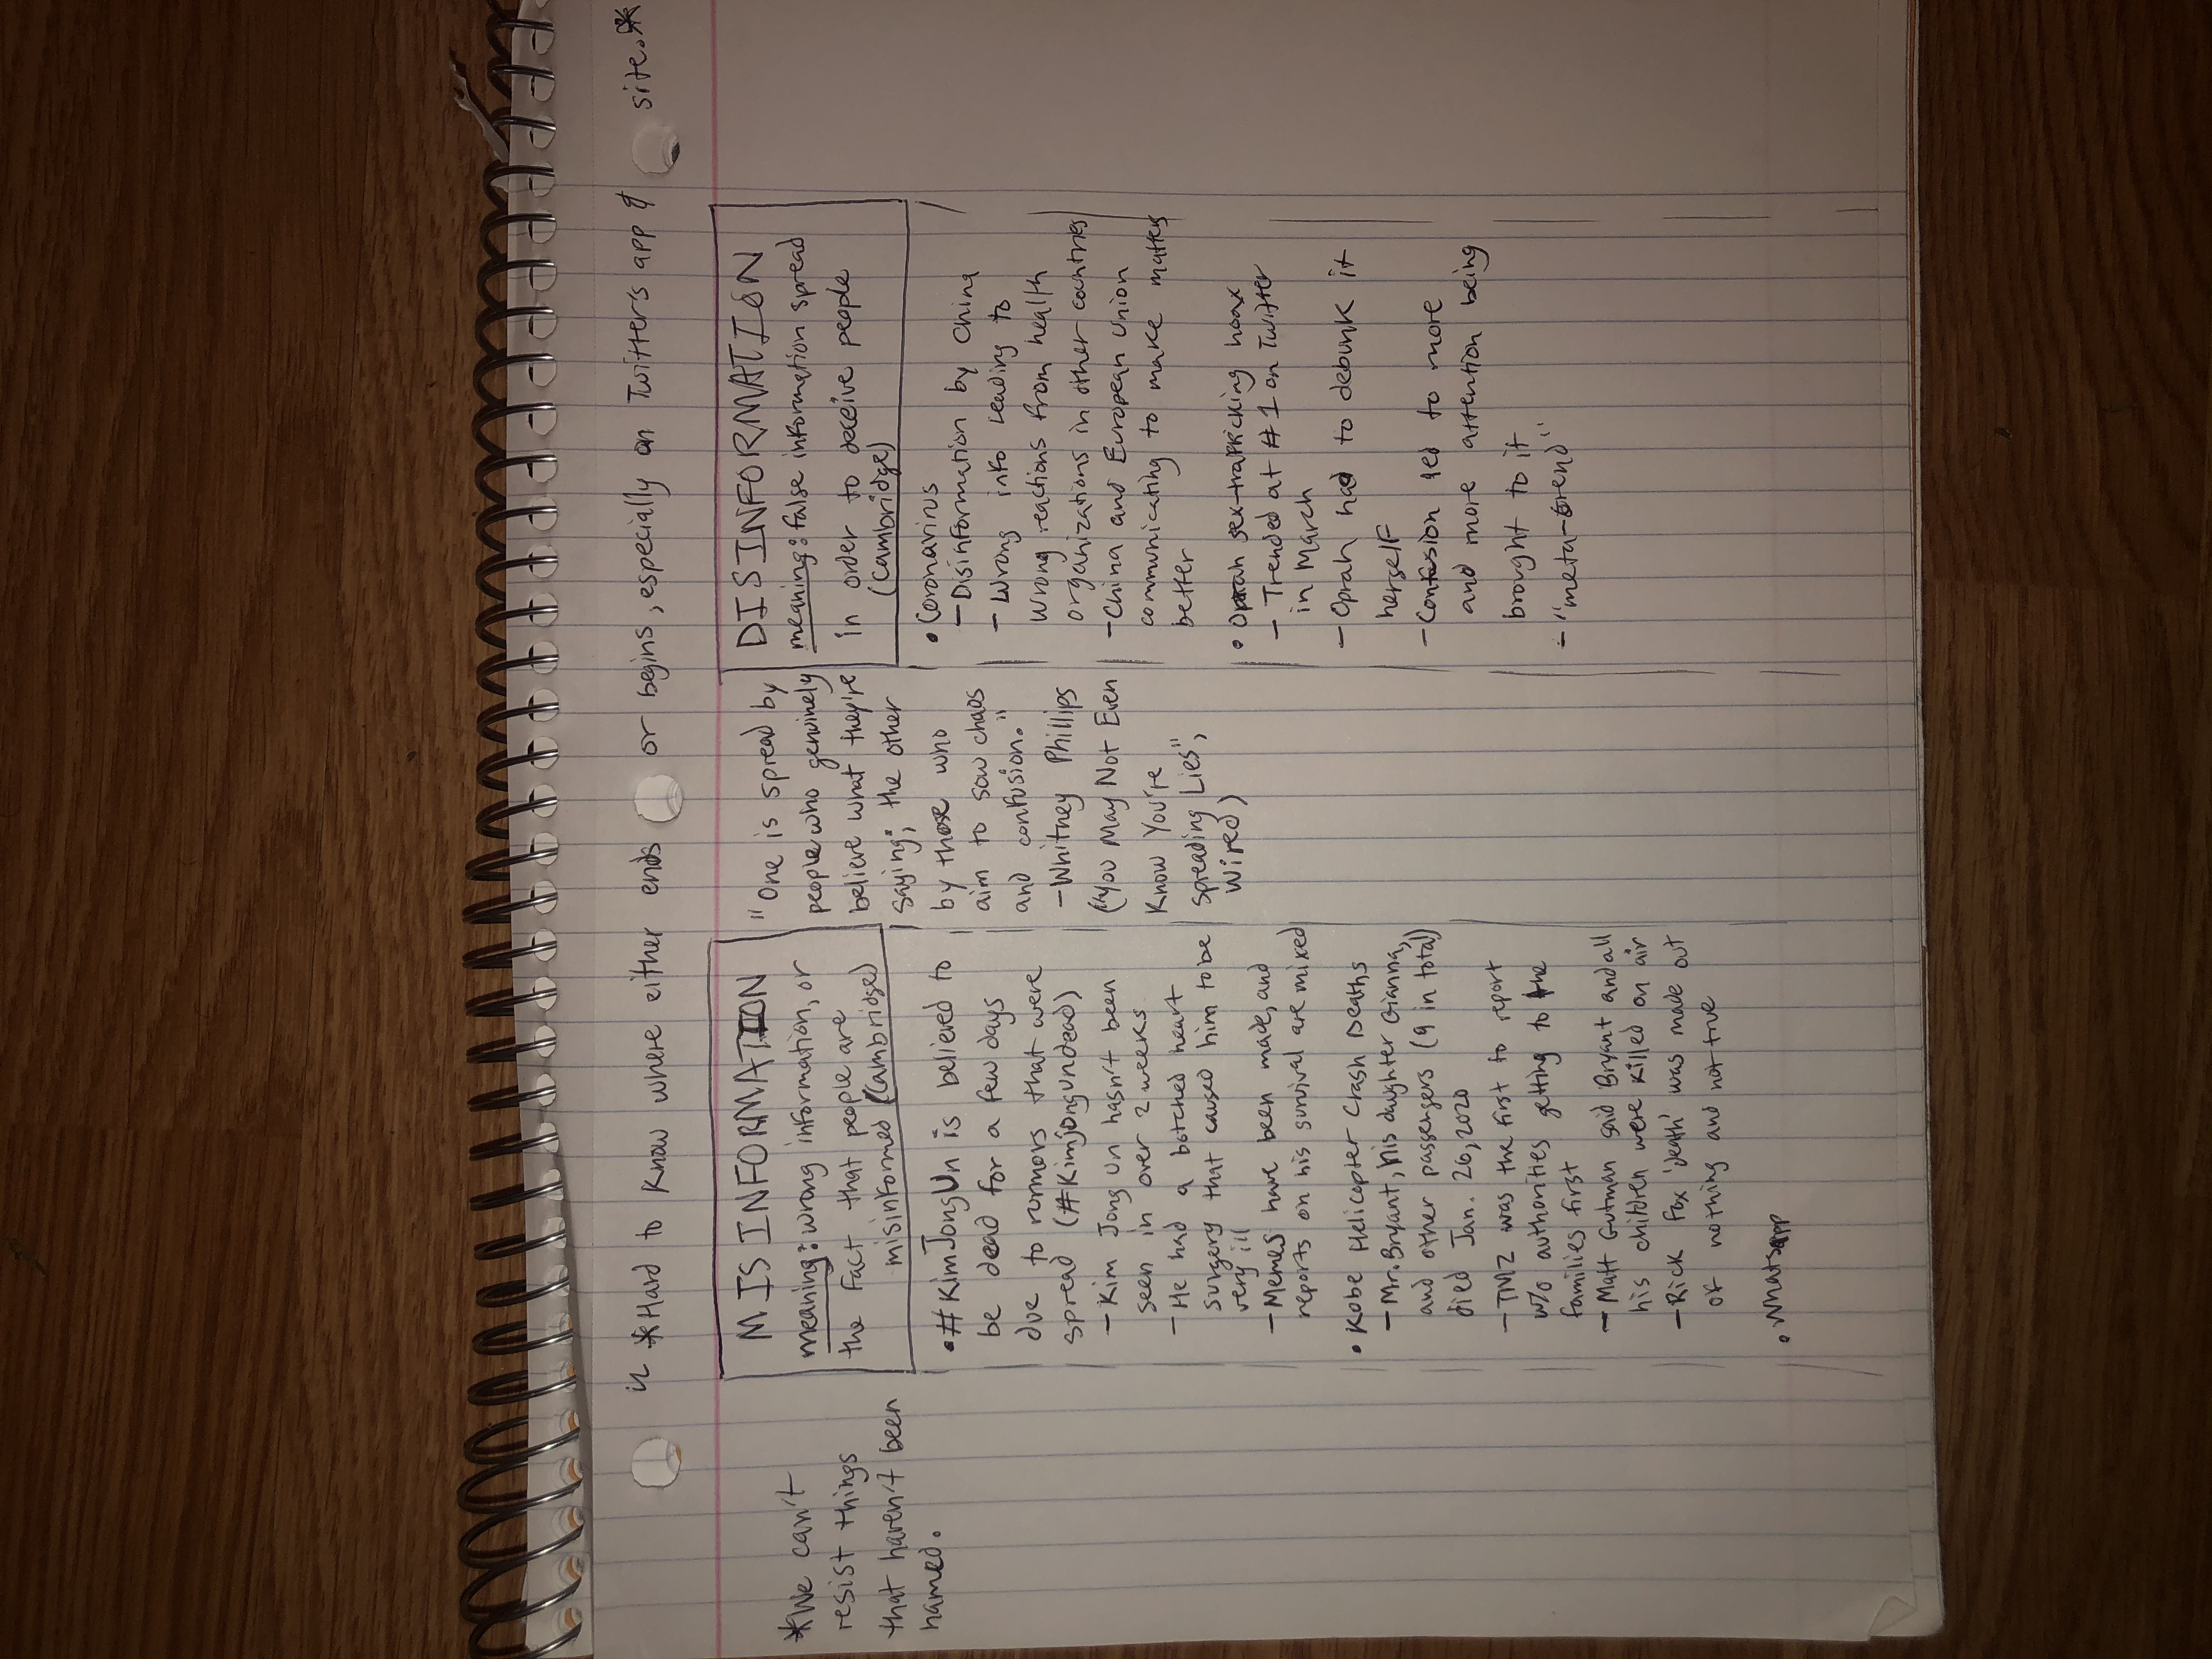 *Hard to know where either ends or begins, especially on Twitter's app & site.*
*We can't
resist things
that haven't been
named.
MISINFORMATION
meaning: wrong information, or
the fact that people are
misinformed (Cambridge)
• #KimJongUn is believed to
be dead for a few days
due to rumors that were
spread (#Kimjongundead)
- Kim Jong Un hasn't been
seen in over 2 weeks
- He had a botched heart
surgery that caused him to be
very ill
- Memes have been made, and
reports on his survival are mixed
• Kobe Helicopter Crash Deaths
- Mr. Bryant, his daughter Gianna,
and other passengers (9 in total)
died Jan. 26, 2020
- TMZ was the first to report
w/o authorities getting to the
families first
- Matt Gutman said Bryant and all
his children were killed on air
- Rick Fox 'death' was made out
of nothing and not true
• Whatsapp
"One is spread by
people who genuinely
believe what they're
saying; the other
by those who
aim to sow chaos
and confusion."
- Whitney Phillips
("You May Not Even
Know You're
Spreading Lies",
Wired)
DISINFORMATION
meaning: false information spread
in order to deceive people
(Cambridge)
• Coronavirus
- Disinformation by China
- Wrong info leading to
wrong reactions from health
organizations in other countries
- China and European Union
communicating to make matters
better
• Oprah sex-trafficking hoax
- Trended at #1 on Twitter
in March
- Oprah had to debunk it
herself
- Confusion led to more
and more attention being
brought to it
- "meta-trend"